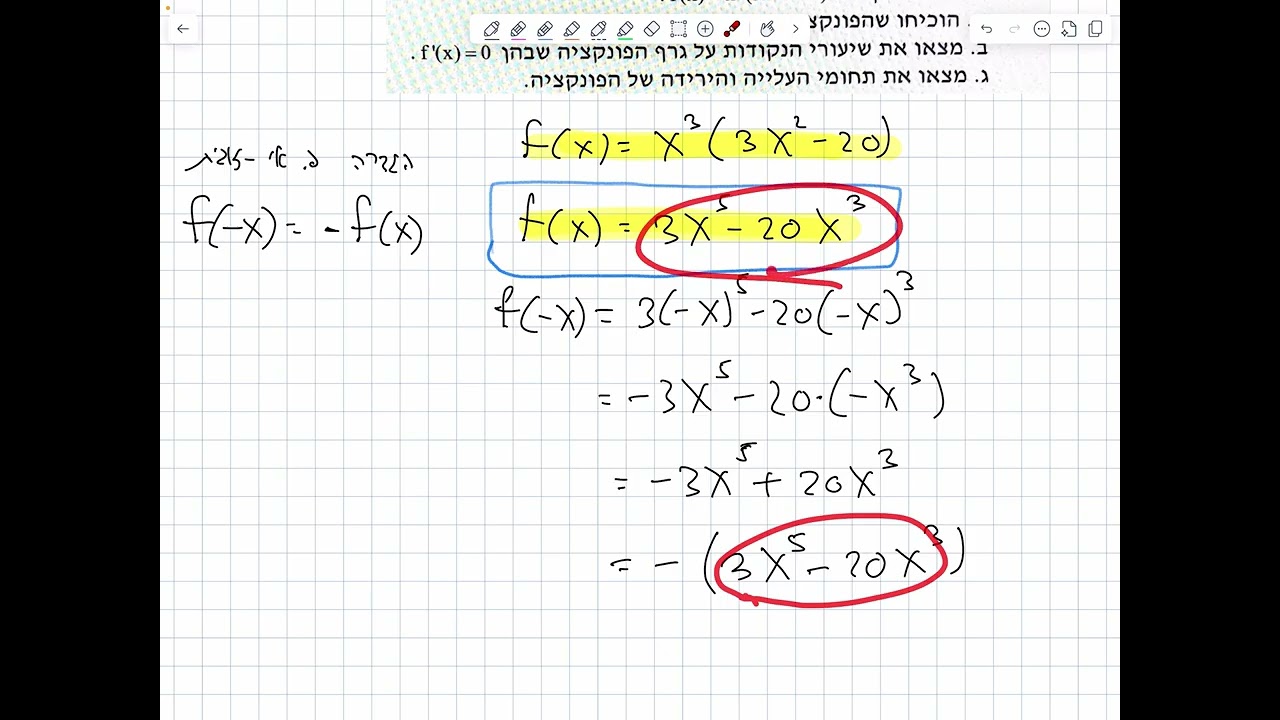 . הוכיחו שהפונקצ
ב. מצאו את שיעורי הנקודות על גרף הפונקציה שבהן f'(x) = 0 .
ג. מצאו את תחומי העלייה והירידה של הפונקציה.
f(x) = x³(3x² - 20)
הגדרה פ. אי-זוגית
f(x) = 3x⁵ - 20x³
f(-x) = - f(x)
f(-x) = 3(-x)⁵ - 20(-x)³
= -3x⁵ - 20·(-x³)
= -3x⁵ + 20x³
= - (3x⁵ - 20x³)